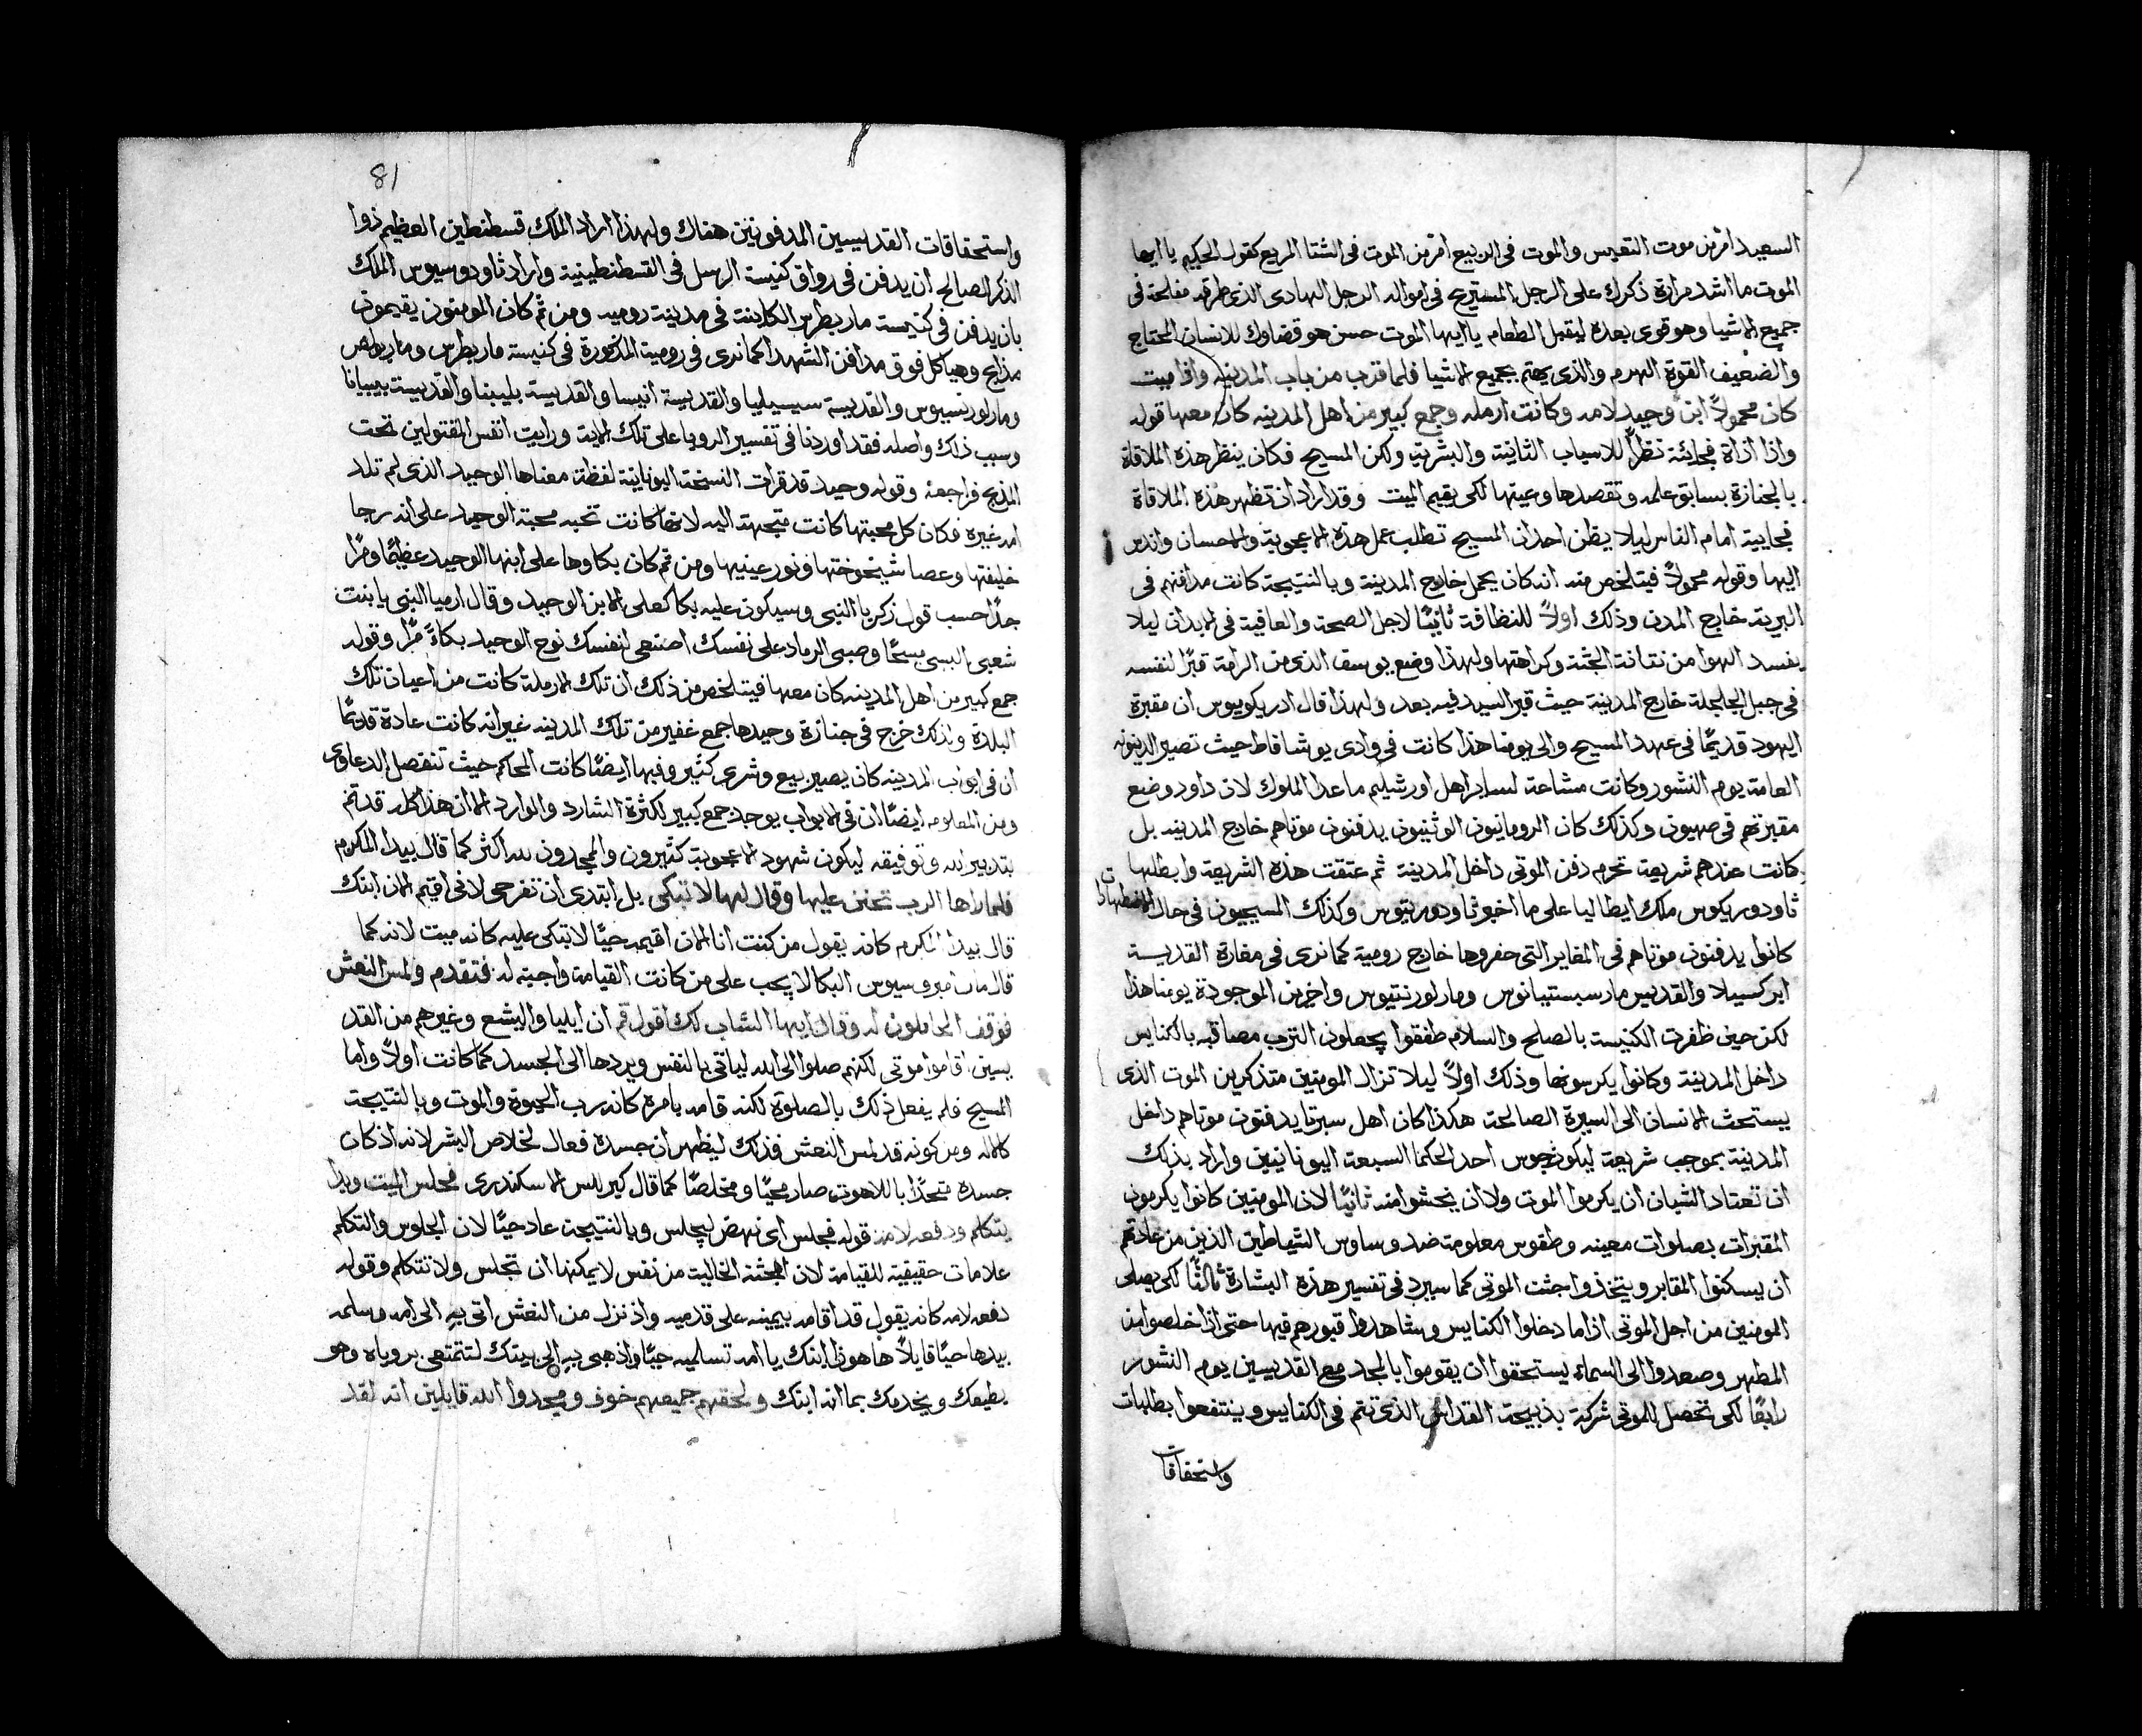 السعيد امر من موت التعيس والموت في الربيع امر من الموت في الشتا المريع كقول الحكيم يا ايها
الموت ما اشد مرارة ذكرك على الرجل المستريح في امواله الرجل الهادى الذى طرقه مفلحة في
جميع الاشيا وهو قوى بعده ليقبل الطعام يا ايها الموت حسن هو قضاوك للانسان المحتاج
والضعيف القوة الهرم والذى يهتم بجميع الاشيا فلما قرب من باب المدينه واذا ميت
كان محمولاً ابن وحيد لامه وكانت ارمله وجمع كبير من اهل المدينه كان معها قوله
واذا اذاة فجائئة نظرًا للاسباب الثانية والبشرية ولكن المسيح فكان ينظر هذه الملاقاة
بالجنازة بسابق علمه وتقصدها وعينها لكى يقيم الميت وقد اراد ان تظهر هذه الملاقاة
فجايية امام الناس ليلا يظن احد ان المسيح تطلب عمل هذه الاعجوبة والاحسان واندب
اليها وقوله محمولاً فيتلخص منه انه كان يحمل خارج المدينة وبالنتيجة كانت مدافنهم في
البرية خارج المدن وذلك اولاً للنظافة ثانيًا لاجل الصحة والعافية في الابدان ليلا
يفسد الهوا من نتانة الجثة وكراهتها ولهذا وضع يوسف الذى من الرامة قبرًا لنفسه
في جبل الجلجلة خارج المدينة حيث قبر السيد فيه بعد ولهذا قال ادريكوميوس ان مقبرة
اليهود قديمًا في عهد المسيح والى يومنا هذا كانت في وادى يوشافاط حيث تصير الدينونه
العامة يوم النشور وكانت مشاعة لساير اهل اورشليم ما عدا الملوك لان داود وضع
مقبرتهم في صهيون وكذلك كان الرومانيون الوثنيون يدفنون موتاهم خارج المدينه بل
كانت عندهم شريعة تحرم دفن الموتى داخل المدينة ثم عتقت هذه الشريعة وابطلها
ثاودوريكوس ملك ايطاليا على ما اخبر ثاودوريتوس وكذلك المسيحيون في حال الاضطهادات
كانوا يدفنون موتاهم في المغاير التى حفروها خارج رومية كما نرى في مغارة القديسة
ابركسيلا والقديس مار سبستيانوس ومار لورنتيوس واخرين الموجودة يومنا هذا
لكن حين ظفرت الكنيسة بالصلح والسلام طفقوا يجعلون الترب مصاقبه بالكنايس
داخل المدينة وكانوا يكرسونها وذلك اولاً ليلا تزال المومنين متذكرين الموت الذى
يستحث الانسان الى السيرة الصالحة هكذا كان اهل سبرتا يدفنون موتاهم داخل
المدينة بموجب شريعة ليكورجوس احد الحكما السبعة اليونانيين واراد بذلك
ان تعتاد الشبان ان يكرموا الموت ولا ان يخشوا منه ثانيًا لان المومنين كانوا يكرمون
المقبرات بصلوات معينه وطقوس معلومة ضد وساوس الشياطين الذين من عادتهم
ان يسكنوا المقابر ويتخذوا جثث الموتى كما سيرد في تفسير هذه البشارة ثالثًا لكى يصلى
المومنين من اجل الموتى اذا ما دخلوا الكنايس وشاهدوا قبورهم فيها حتى اذا خلصوا من
المطهر وصعدوا الى السماء يستحقوا ان يقوموا بالمجد مع القديسين يوم النشور
رابعًا لكى تحصل للموتى شركة بذبيحة القداس الذى تتم في الكنايس وينتفعوا بطلبات
واستحقاقات
81
واستحقاقات القديسين المدفونين هناك ولهذا اراد الملك قسطنطين العظيم ذوا
الذكر الصالح ان يدفن في رواق كنيسة الرسل في القسطنطينية واراد ثاودوسيوس الملك
بان يدفن في كنيسة مار بطرس الكاينة في مدينة روميه ومن ثم كان المومنون يقيمون
مذابح وهياكل فوق مدافن الشهدا كما نرى في رومية المذكورة في كنيسة مار بطرس ومار بولص
ومار لورنسيوس والقديسة سيسيليا والقديسة انيسا والقديسة بليبنا والقديسة بيبيانا
وسبب ذلك واصله فقد اوردنا في تفسير الرويا على تلك الاية ورايت انفس المقتولين تحت
المذبح فراجعه وقوله وحيد قد قرات النسخة اليونانية لفظة معناها الوحيد الذى لم تلد
امه غيره فكان كل محبتها كانت متجهة اليه لانها كانت تحبه محبة الوحيد على انه رجا
خليفتها وعصا شيخوختها ونور عينيها ومن ثم كان بكاوها على ابنها الوحيد عظيمًا ومرًا
جدًا حسب قول زكريا النبى وسيكون عليه بكا كعلى الابن الوحيد وقال ارميا النبى يا بنت
شعبى البسى مسحًا وصبى الرماد على نفسك اصنعى لنفسك نوح الوحيد بكاءً مرًا وقوله
جمع كبير من اهل المدينه كان معها فيتلخص من ذلك ان تلك الارملة كانت من اعيان تلك
البلدة ولذلك خرج في جنازة وحيدها جمع غفير من تلك المدينه غير انه كانت عادة قديمًا
ان في ابواب المدينه كان يصير بيع وشرى كثير وفيها ايضًا كانت المحاكم حيث تنفصل الدعاوى
ومن المعلوم ايضًا ان في الابواب يوجد جمع كبير لكثرة الشارد والوارد الا ان هذا كله قد تم
بتدبير الله وتوفيقه ليكون شهود الاعجوبة كثيرون والمجدون لله اكثر كما قال بيدا المكرم
فلما راها الرب تحنن عليها وقال لها لا تبكى بل ابتدى ان تفرحى لانى اقيم الان ابنك
قال بيدا المكرم كانه يقول من كنت انا الان اقيمه حيًا لا تبكى عليه كانه ميت لانه كما
قال مار امبروسيوس البكا لا يجب على من كانت القيامة واجبة له فتقدم ولمس النعش
فوقف الحاملون له وقال ايها الشاب لك اقول قم ان ايليا واليشع وغيرهم من القد
يسين اقاموا موتى لكنهم صلوا الى الله لياتى بالنفس ويردها الى الجسد كما كانت اولاً واما
المسيح فلم يفعل ذلك بالصلوة لكنه قامه بامره كانه رب الحيوة والموت وبالنتيجة
كالاله ومن كونه قد لمس النعش فذلك ليظهر ان جسده فعال لخلاص البشر لانه اذ كان
جسده متحدًا باللاهوت صار محيًا ومخلصًا كما قال كيرللس الاسكندرى فجلس الميت وبدا
يتكلم ودفعه لامه قوله فجلس اى نهض ليجلس وبالنتيجة عاد حيًا لان الجلوس والتكلم
علامات حقيقية للقيامة لان الجثة الخالية من نفس لا يمكنها ان تجلس ولا تتكلم وقوله
دفعه لامه كانه يقول قد اقامه بيمينه على قدميه واذ نزل من النعش اتى به الى امه وسلمه
بيدها حيًا قايلاً ها هوذا ابنك يا امه تسلميه حيًا واذهبى به الى بيتك لتتمتعى بروياه وهو
يطيعك ويخدمك بما انه ابنك ولحقهم جميعهم خوف ومجدوا الله قايلين انه لقد